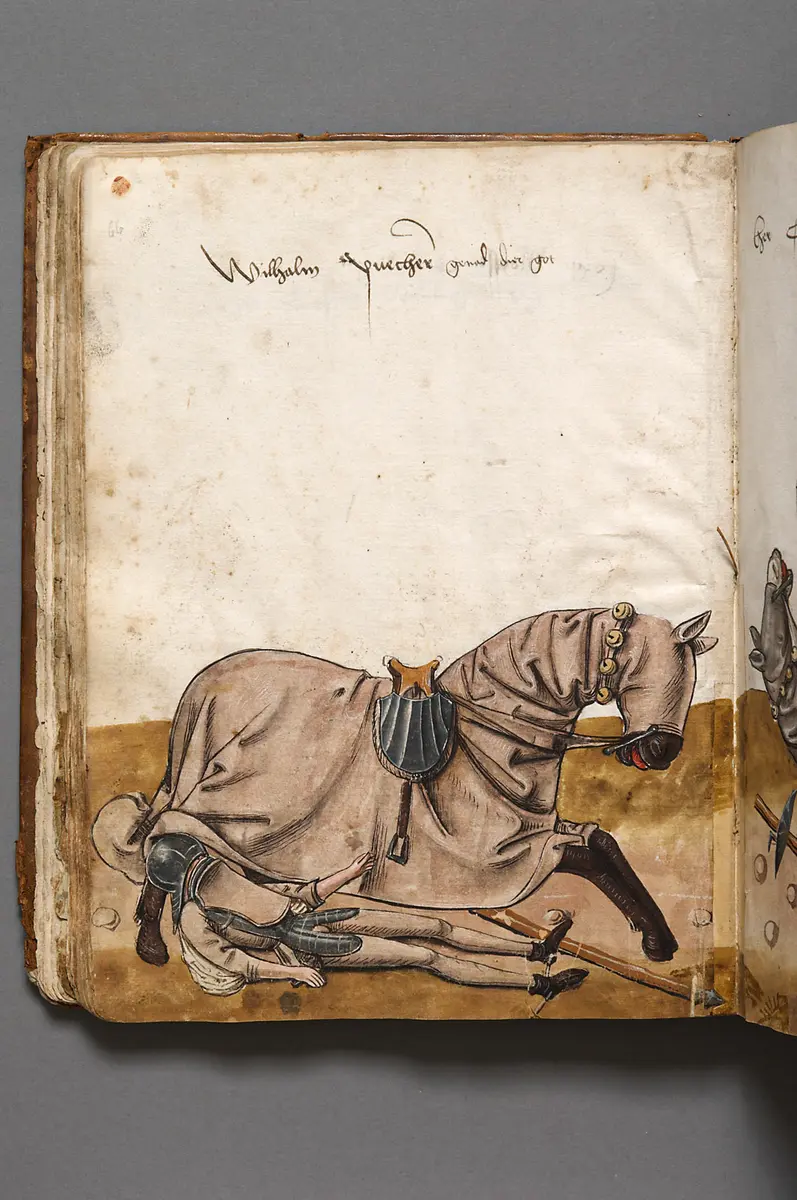 66
Wilhalm Puecher genad dir got
her